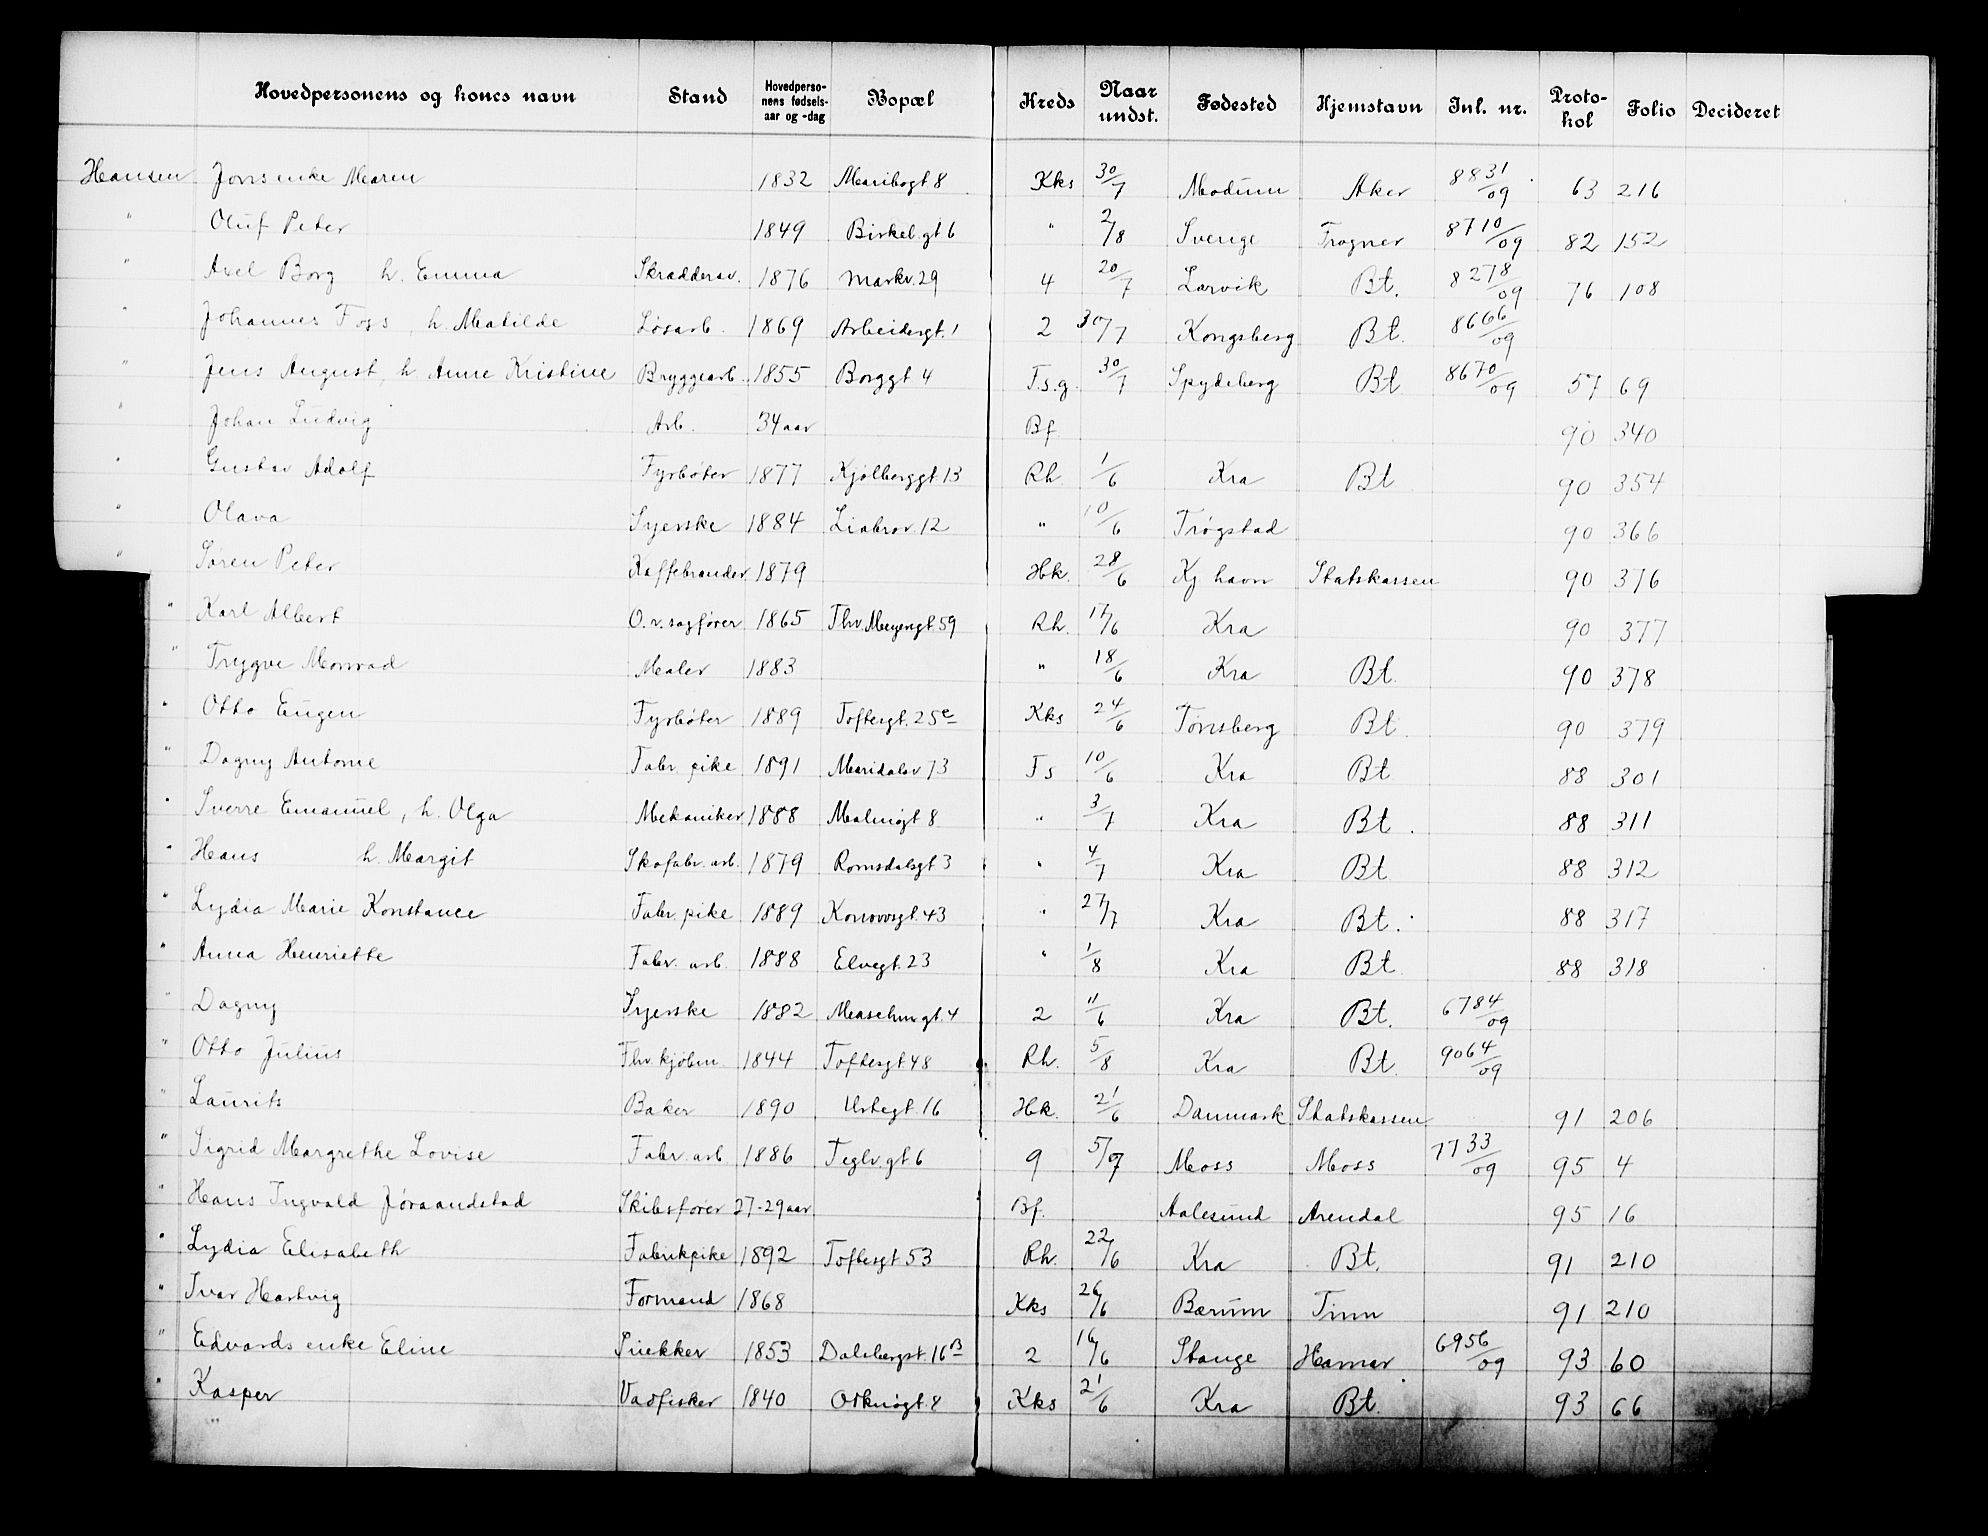 Hovedpersonens og kones navn Stand Hovedperso-nens fødsels-aar og -dag Bopæl Kreds Naar undst. Fødested Hjemstavn Inl. nr. Proto-kol Folio Decideret
Hansen Jons enke Maren 1832 Maribogt 8 Kks 30/7 Modum Aker 8831/09 63 216
" Oluf Peter 1849 Birkel.gt 6 " 2/8 Sverige Trogner 8710/09 82 152
" Axel Borg h. Emma Skrædderav. 1876 Markv. 29 4 20/7 Larvik Bt. 8278/09 76 108
" Johannes Foss, h. Matilde Løsarb. 1869 Arbeidergt. 1 2 30/7 Kongsberg Bt. 8666/09
" Jens August, h Anne Kristine Bryggearb. 1855 Borggt 4 T.s.g. 30/7 Spydeberg Bt 8670/09 57 69
" Johan Ludvig Arb. 34 aar Bf 90 340
" Gustav Adolf Fyrbøter 1877 Kjølberggt 13 Rh. 1/6 Kra Bt 90 354
" Olava Syerske 1884 Liabrov. 12 " 10/6 Trøgstad 90 366
" Søren Peter Kaffebrander 1879 Hk. 28/6 Kj havn Statskassen 90 376
" Karl Albert O.r.sagfører 1865 Thv. Meyersgt. 59 Rh. 17/6 Kra 90 377
" Trygve Monrad Maler 1883 " 18/6 Kra Bt. 90 378
" Otto Eugen Fyrbøter 1889 Toftesgt. 25e Kks 24/6 Tønsberg Bt. 90 379
" Dagny Antonie Fabr. pike 1891 Maridalsv 73 Ts 10/6 Kra Bt 88 301
" Sverre Emanuel, h. Olga Mekaniker 1888 Malmøgt 8. " 3/7 Kra Bt. 88 311
" Hans h. Margit Skofabr. arb. 1879 Romsdalsgt 3 " 4/7 Kra Bt 88 312
" Lydia Marie Konstance Fabr. pike 1889 Korsvosgt. 43 " 27/7 Kra Bt. 88 317
" Anna Henriette Fabr. arb. 1888 Elvegt. 23 " 1/8 Kra Bt. 88 318
" Dagny Syerske 1882 Maschmgt. 4 2 11/6 Kra Bt. 6784/09
" Otto Julius Fhv. kjøbm. 1844 Toftesgt 48 Rh. 5/8 Kra Bt. 9064/09
" Laurits Baker 1890 Urtegt. 16 Hk. 21/6 Danmark Statskassen 91 206
" Sigrid Margrethe Lovise Fabr. arb 1886 Teglv.gt 6 9 5/07 Moss Moss 7733/09 95 4
" Hans Ingvald Jøraandstad Skibsfører 27-29 aar Bf. Aalesund Arendal 95 16
" Lydia Elisabeth Fabrikpike 1892 Toftesgt 53 Rh. 22/6 Kra Bt. 91 210
" Ivar Hartvig Formand 1868 Kks 26/6 Bærum Tinn 91 210
" Edvards enke Eline Snekker 1853 Dalsbergst. 16B 2 16/6 Stange Hamar 6956/09 93 60
" Kasper Vadfisker 1840 Orknøgt. 8 Kks 21/6 Kra Bt. 93 66
"